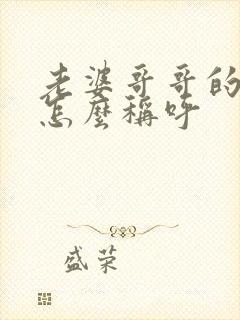 老婆哥哥的
怎麼稱呼
盛荣